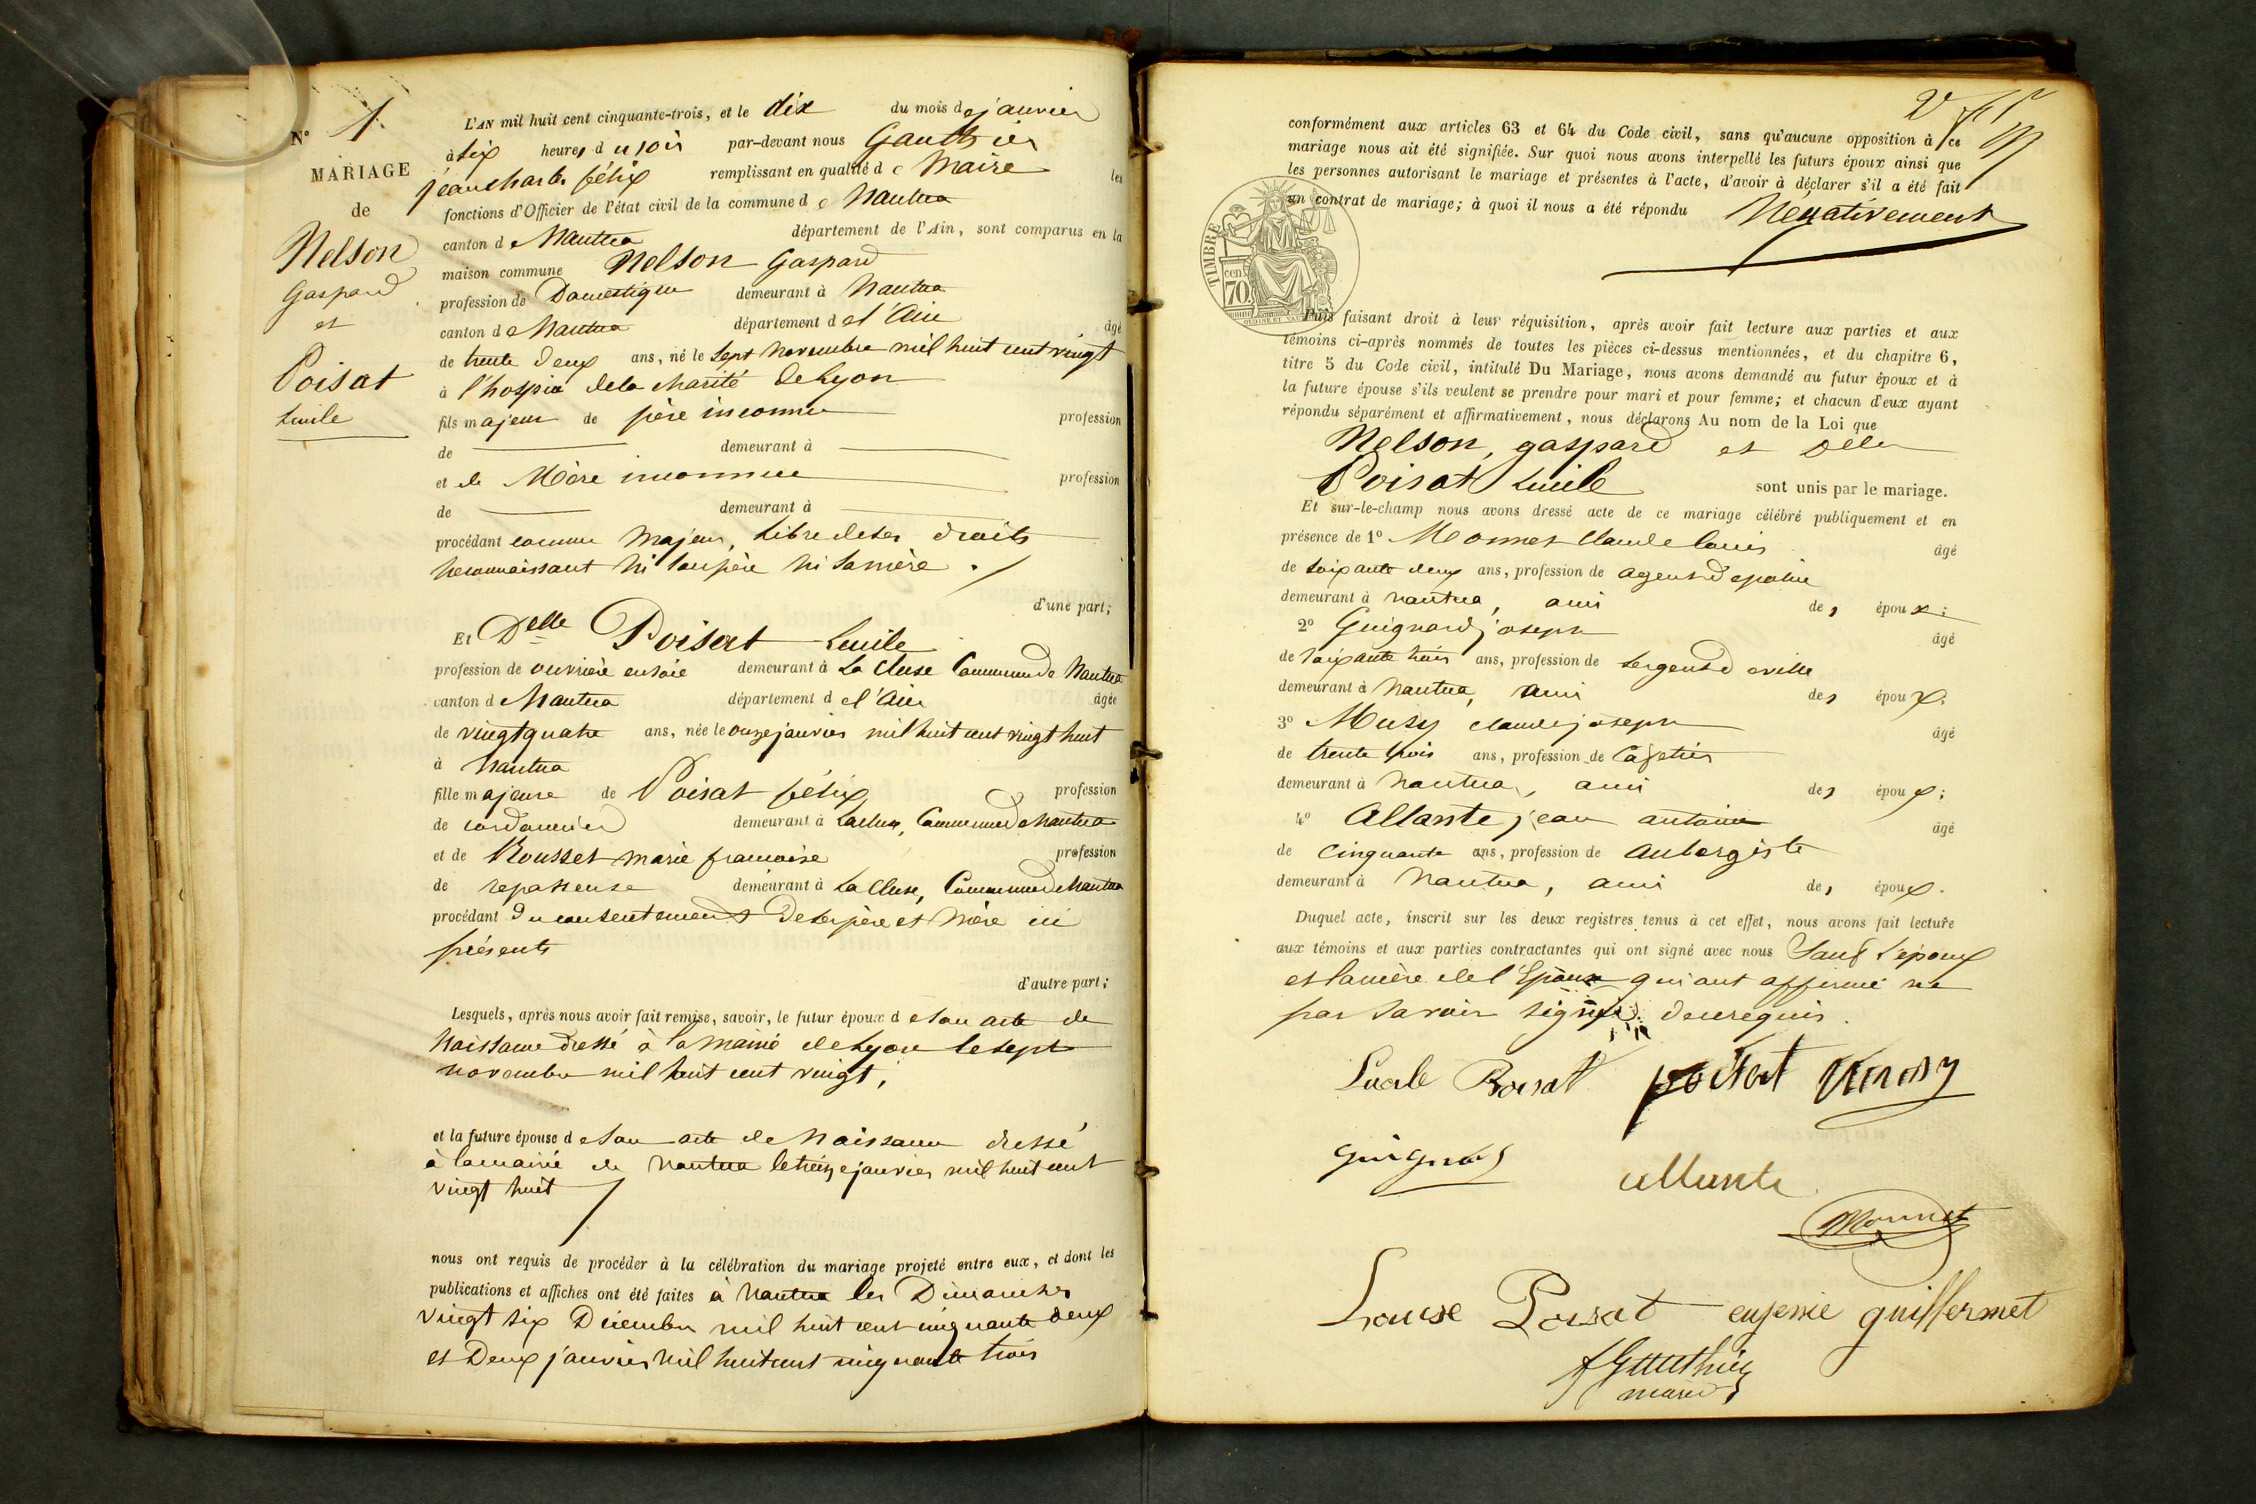 N° 1
MARIAGE
de
Nelson
Gaspard
et
Poisat
Lucile
L'AN mil huit cent cinquante-trois, et le dix du mois de janvier
à six heures du soir par-devant nous Gauthier
jean charles félix remplissant en qualité de Maire les
fonctions d'Officier de l'état civil de la commune de Nantua
canton de Nantua département de l'Ain, sont comparus en la
maison commune Nelson Gaspard
profession de Domestique demeurant à Nantua
canton de Nantua département de l'Ain âgé
de trente deux ans, né le sept novembre mil huit cent vingt
à l'hospice de la charité de Lyon
fils majeur de père inconnu profession
de demeurant à
et de Mère inconnue profession
de demeurant à
procédant comme Majeur, Libre de ses droits
ne connaissant ni son père ni sa mère.
d'une part;
Et Delle Poisat Lucile
profession de ouvrière en soie demeurant à La Cluse Commune de Nantua
canton de Nantua département de l'Ain âgée
de vingt quatre ans, née le onze janvier mil huit cent vingt huit
à Nantua
fille majeure de Poisat félix profession
de cordonnier demeurant à La cluse, Commune de Nantua
et de Rousset marie francoise profession
de repasseuse demeurant à La Cluse, Commune de Nantua
procédant du consentement de ses père et Mère ici
présents
d'autre part;
Lesquels, après nous avoir fait remise, savoir, le futur époux de son acte de
Naissance dressé à la Mairie de Lyon le sept
novembre mil huit cent vingt,
et la future épouse de son acte de Naissance dressé
à la mairie de Nantua le treize janvier mil huit cent
vingt huit
nous ont requis de procéder à la célébration du mariage projeté entre eux, et dont les
publications et affiches ont été faites à Nantua les Dimanches
vingt six Décembre mil huit cent cinquante deux
et Deux janvier mil huit cent cinquante trois
conformément aux articles 63 et 64 du Code civil, sans qu'aucune opposition à ce
mariage nous ait été signifiée. Sur quoi nous avons interpellé les futurs époux ainsi que
les personnes autorisant le mariage et présentes à l'acte, d'avoir à déclarer s'il a été fait
un contrat de mariage; à quoi il nous a été répondu Négativement
TIMBRE
cen.
70
Puis faisant droit à leur réquisition, après avoir fait lecture aux parties et aux
témoins ci-après nommés de toutes les pièces ci-dessus mentionnées, et du chapitre 6,
titre 5 du Code civil, intitulé Du Mariage, nous avons demandé au futur époux et à
la future épouse s'ils veulent se prendre pour mari et pour femme; et chacun d'eux ayant
répondu séparément et affirmativement, nous déclarons Au nom de la Loi que
Nelson, gaspard et Delle
Poisat Lucile sont unis par le mariage.
Et sur-le-champ nous avons dressé acte de ce mariage célébré publiquement et en
présence de 1° Monnet Claude Louis âgé
de soixante deux ans, profession de agent de police
demeurant à nantua, ami des époux;
2° Guignard joseph âgé
de soixante trois ans, profession de sergent de ville
demeurant à Nantua, ami des époux.
3° Musy claude joseph âgé
de trente trois ans, profession de Cafetier
demeurant à nantua, ami des époux;
4° Allante jean antoine âgé
de cinquante ans, profession de aubergiste
demeurant à Nantua, ami des époux.
Duquel acte, inscrit sur les deux registres tenus à cet effet, nous avons fait lecture
aux témoins et aux parties contractantes qui ont signé avec nous Sauf L'époux
et la mère de l'Epouse qui ont affirmé ne
pas savoir signer de ce requis.
Lucile Poisat poisat Musy
Guignard
allante
Monnet
Louise Poisat eugenie guillermet
f Gauthier
maire